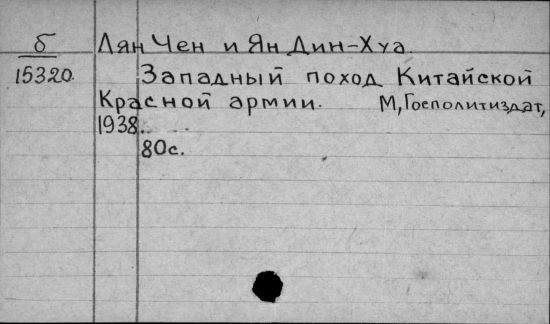 б Лян Чен и Ян Дин-Хуа.
15320. Западный поход Китайской
Красной армии. М, Госполитиздат,
1938.
80с.